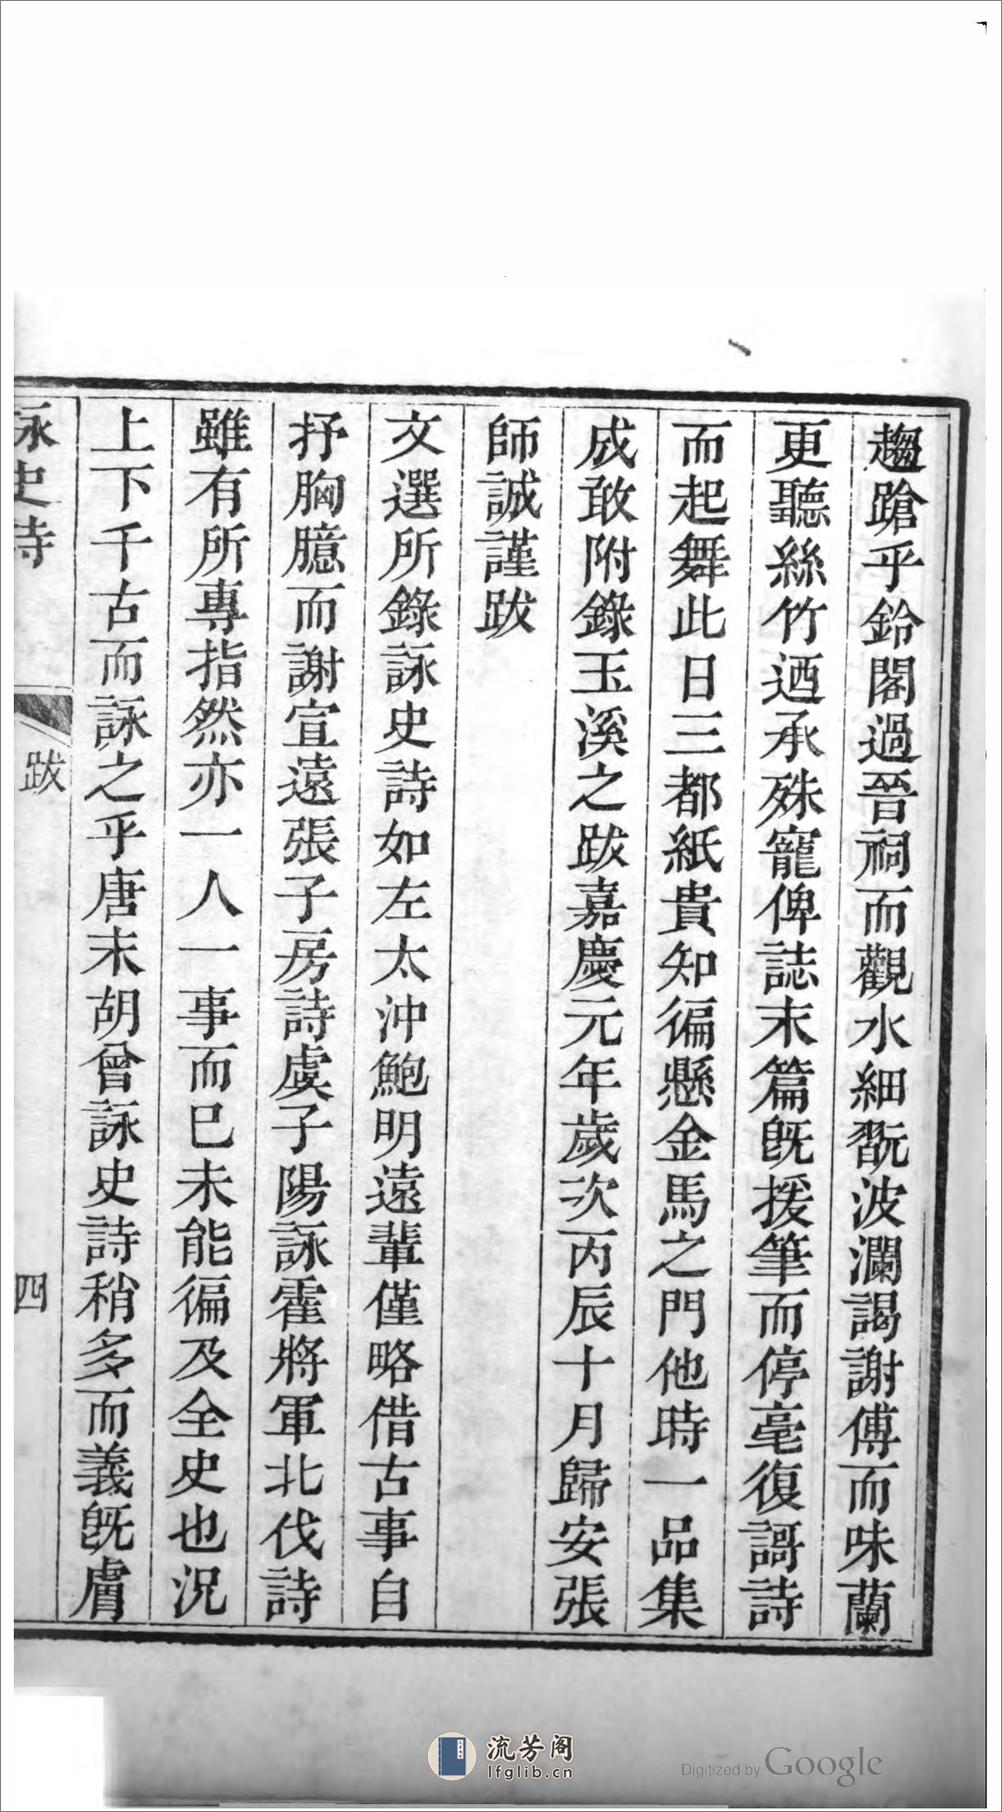 趨蹌乎鈴閣過晉祠而觀水細翫波瀾謁謝傅而味蘭
更聽絲竹迺承殊寵俾誌末篇旣援筆而停毫復謌詩
而起舞此日三都紙貴知徧懸金馬之門他時一品集
成敢附錄玉溪之跋嘉慶元年歲次丙辰十月歸安張
師誠謹跋
文選所錄詠史詩如左太沖鮑明遠輩僅略借古事自
抒胸臆而謝宣遠張子房詩虞子陽詠霍將軍北伐詩
雖有所專指然亦一人一事而巳未能徧及全史也況
上下千古而詠之乎唐末胡曾詠史詩稍多而義旣膚
詠史詩
跋
四
流芳阁
lfglib.cn
Digitized by Google